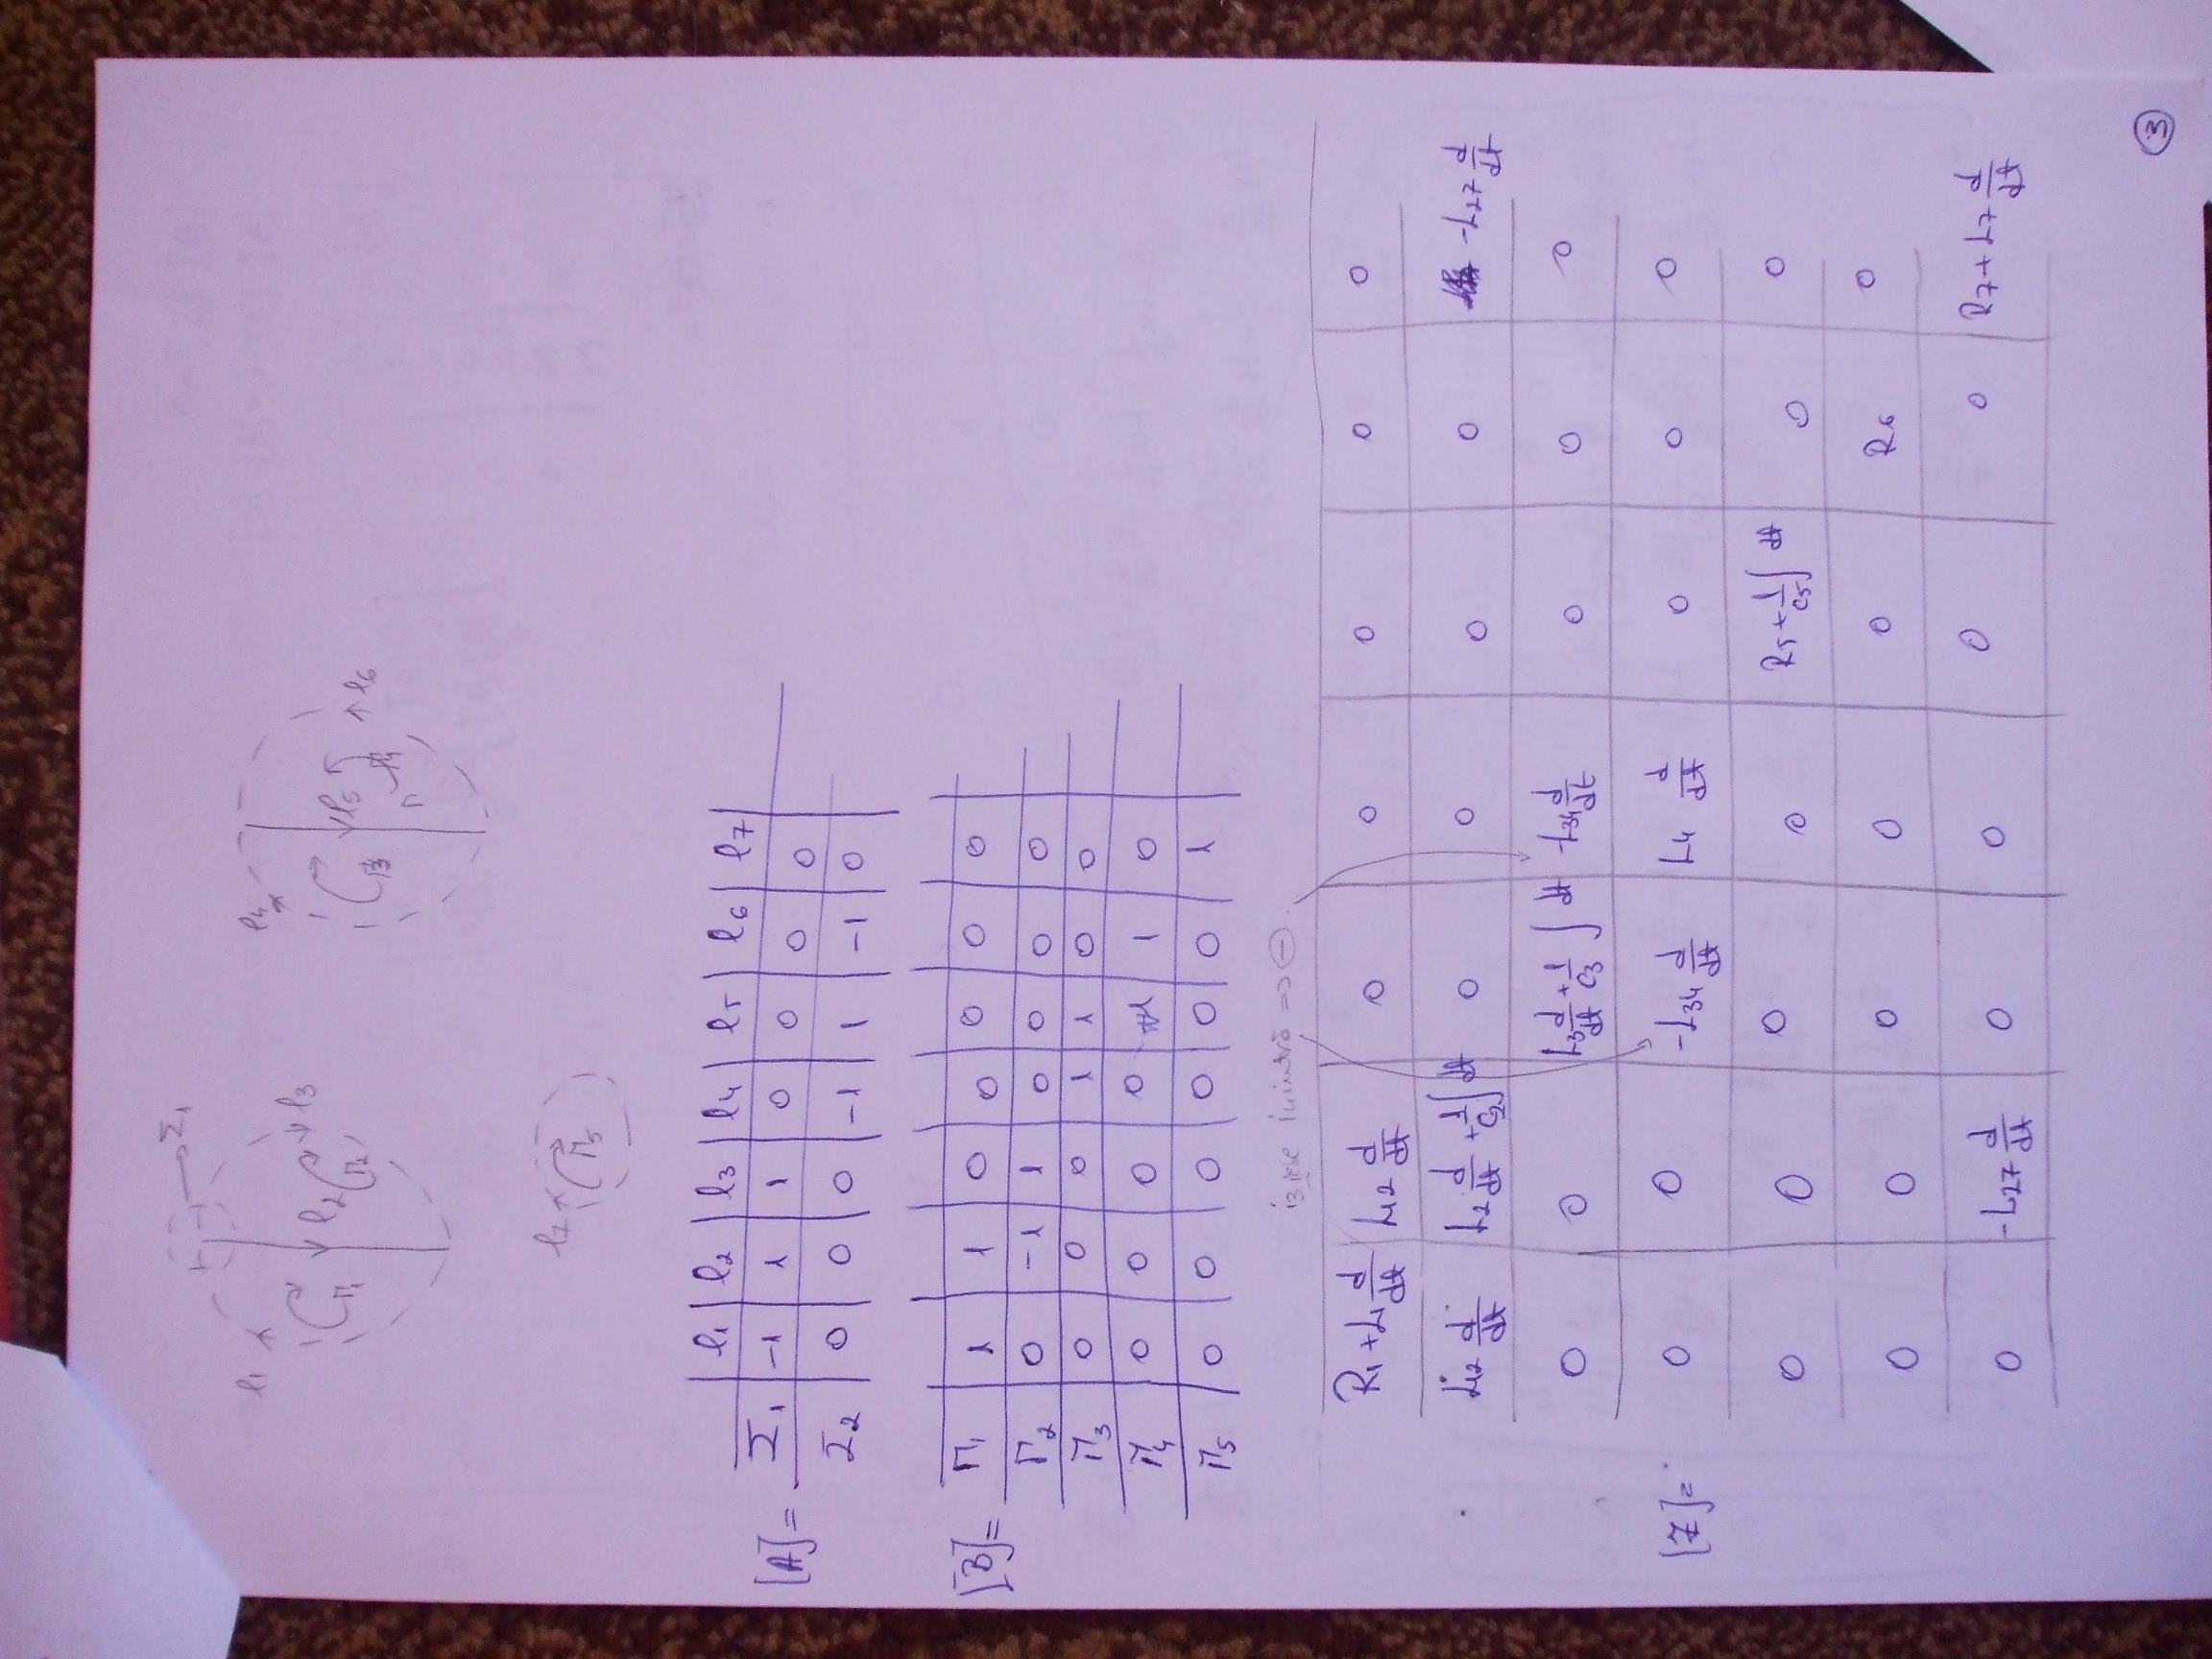 Σ₁
l₁ l₂ l₃ Γ₁ Γ₂
l₄ l₅ l₆ Γ₃ Γ₄
l₇ Γ₅
l₁ l₂ l₃ l₄ l₅ l₆ l₇
[A]= Σ₁ -1 1 1 0 0 0 0
Σ₂ 0 0 0 -1 1 -1 0
[B]= Γ₁ 1 1 0 0 0 0 0
Γ₂ 0 -1 1 0 0 0 0
Γ₃ 0 0 0 1 1 0 0
Γ₄ 0 0 0 0 1 1 0
Γ₅ 0 0 0 0 0 0 1
=> ⊖
R₁+L₁ d/dt L₁₂ d/dt 0 0 0 0 0
L₁₂ d/dt L₂ d/dt + 1/C₂ ∫ dt 0 0 0 0 -L₂₇ d/dt
0 0 L₃ d/dt + 1/C₃ ∫ dt -L₃₄ d/dt 0 0 0
[Z]= 0 0 -L₃₄ d/dt L₄ d/dt 0 0 0
0 0 0 0 R₅ + 1/C₅ ∫ dt 0 0
0 0 0 0 0 R₆ 0
0 -L₂₇ d/dt 0 0 0 0 R₇+L₇ d/dt
3